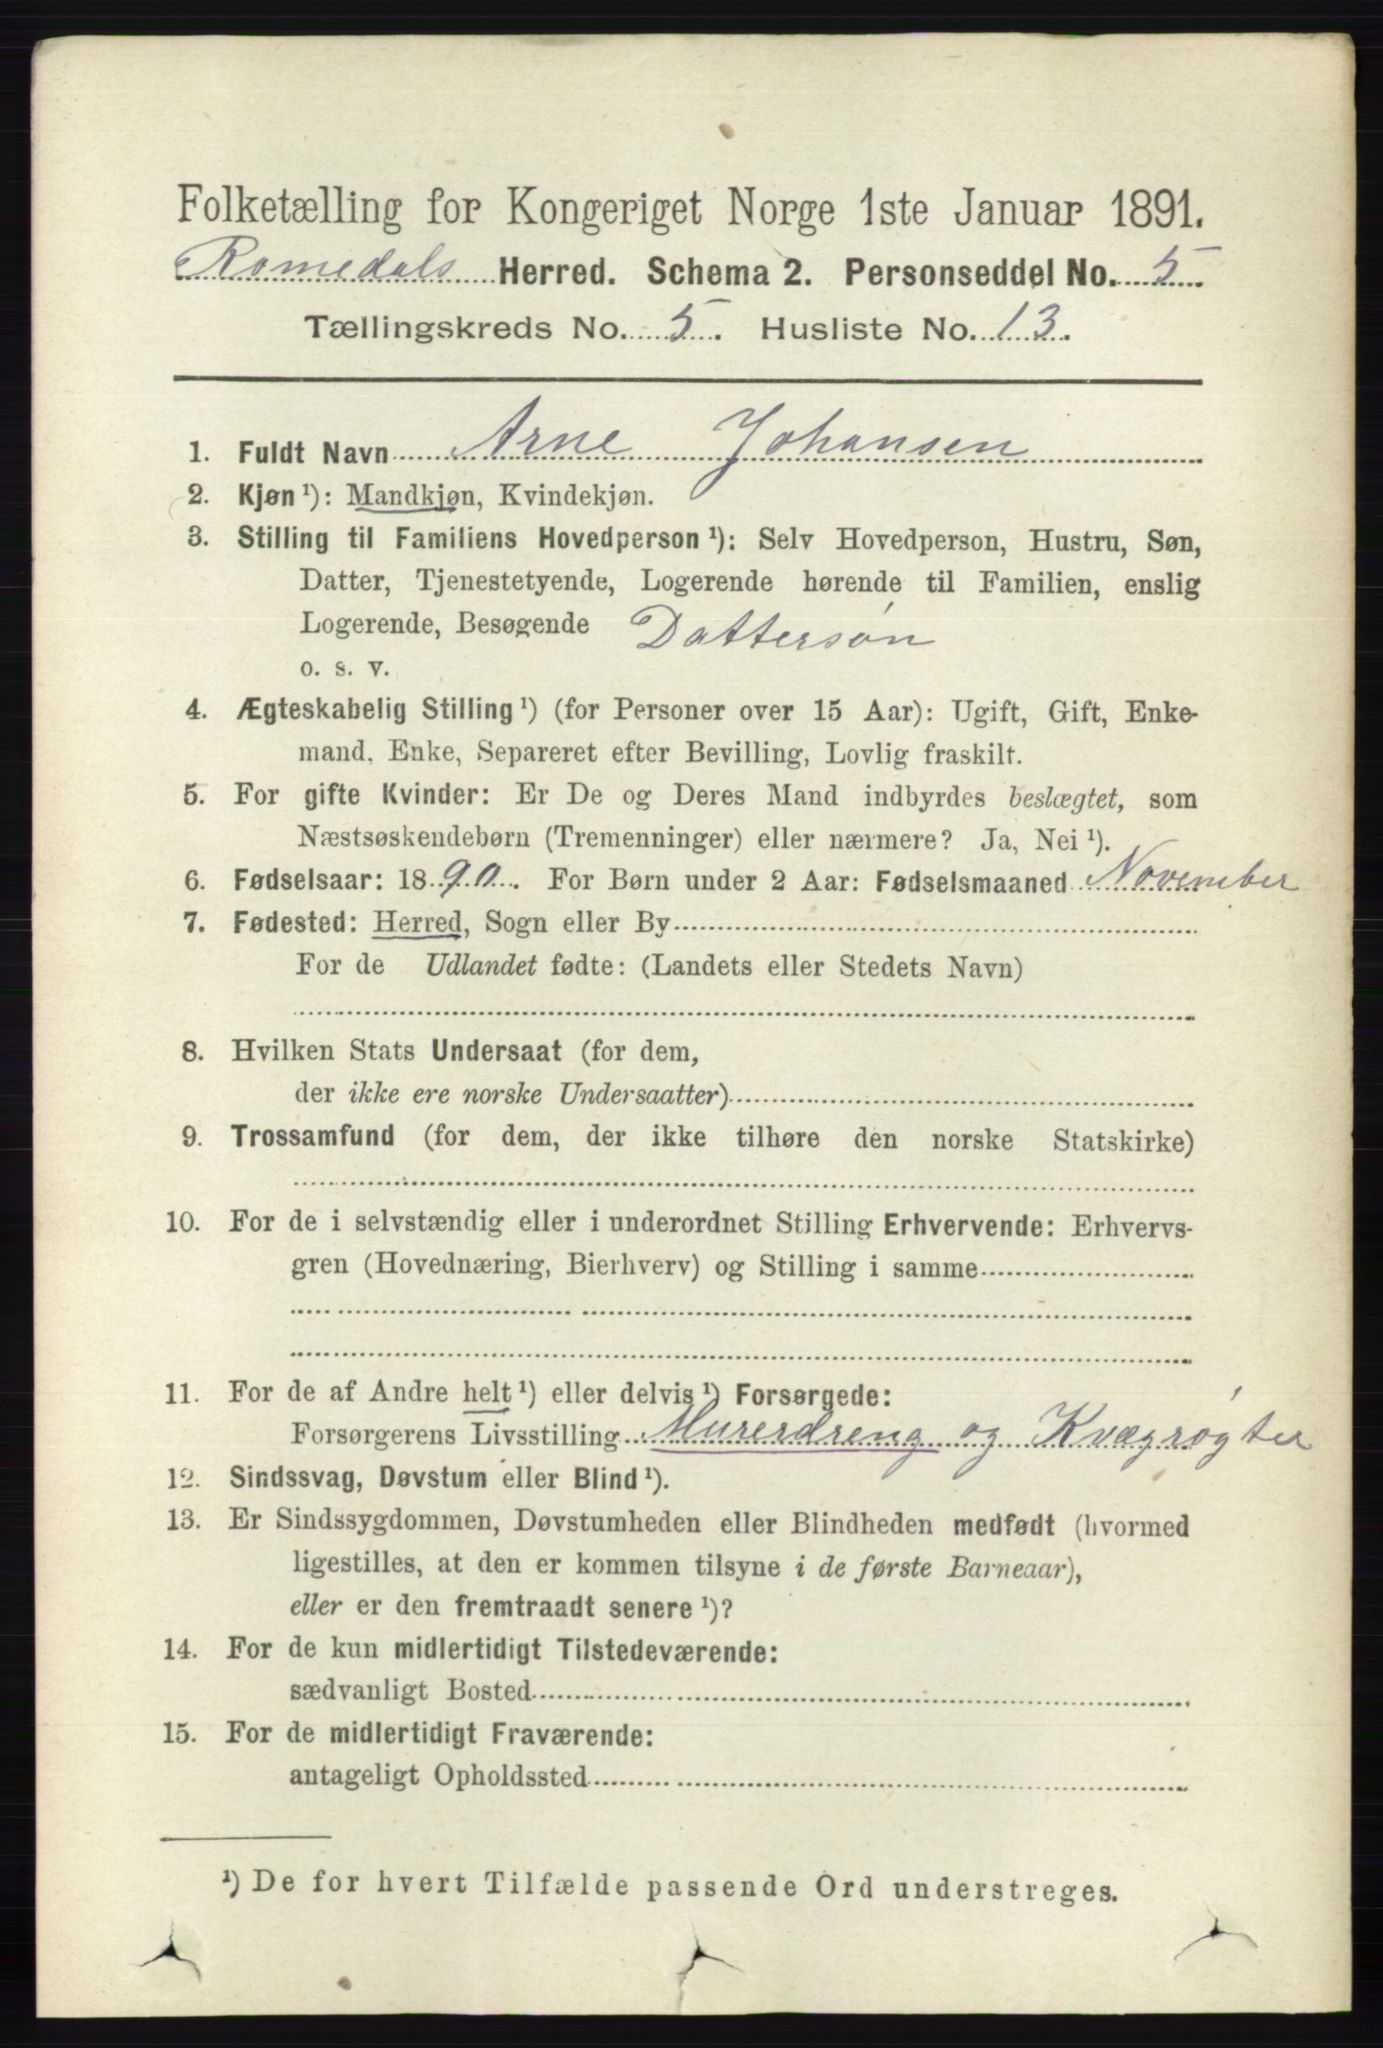 Folketælling for Kongeriget Norge 1ste Januar 1891.
Romedals Herred. Schema 2. Personseddel No. 5
Tællingskreds No. 5. Husliste No. 13.
1. Fuldt Navn Arne Johansen
2. Kjøn ¹): Mandkjøn, Kvindekjøn.
3. Stilling til Familiens Hovedperson ¹): Selv Hovedperson, Hustru, Søn,
Datter, Tjenestetyende, Logerende hørende til Familien, enslig
Logerende, Besøgende Dattersøn
o. s. v.
4. Ægteskabelig Stilling ¹) (for Personer over 15 Aar): Ugift, Gift, Enke-
mand, Enke, Separeret efter Bevilling, Lovlig fraskilt.
5. For gifte Kvinder: Er De og Deres Mand indbyrdes beslægtet, som
Næstsøskendebørn (Tremenninger) eller nærmere? Ja, Nei ¹).
6. Fødselsaar: 1890. For Børn under 2 Aar: Fødselsmaaned November
7. Fødested: Herred, Sogn eller By
For de Udlandet fødte: (Landets eller Stedets Navn)
8. Hvilken Stats Undersaat (for dem,
der ikke ere norske Undersaatter)
9. Trossamfund (for dem, der ikke tilhøre den norske Statskirke)
10. For de i selvstændig eller i underordnet Stilling Erhvervende: Erhvervs-
gren (Hovednæring, Bierhverv) og Stilling i samme
11. For de af Andre helt ¹) eller delvis ¹) Forsørgede:
Forsørgerens Livsstilling Murerdreng og Kvægrøgter
12. Sindssvag, Døvstum eller Blind ¹).
13. Er Sindssygdommen, Døvstumheden eller Blindheden medfødt (hvormed
ligestilles, at den er kommen tilsyne i de første Barneaar),
eller er den fremtraadt senere ¹)?
14. For de kun midlertidigt Tilstedeværende:
sædvanligt Bosted
15. For de midlertidigt Fraværende:
antageligt Opholdssted
¹) De for hvert Tilfælde passende Ord understreges.